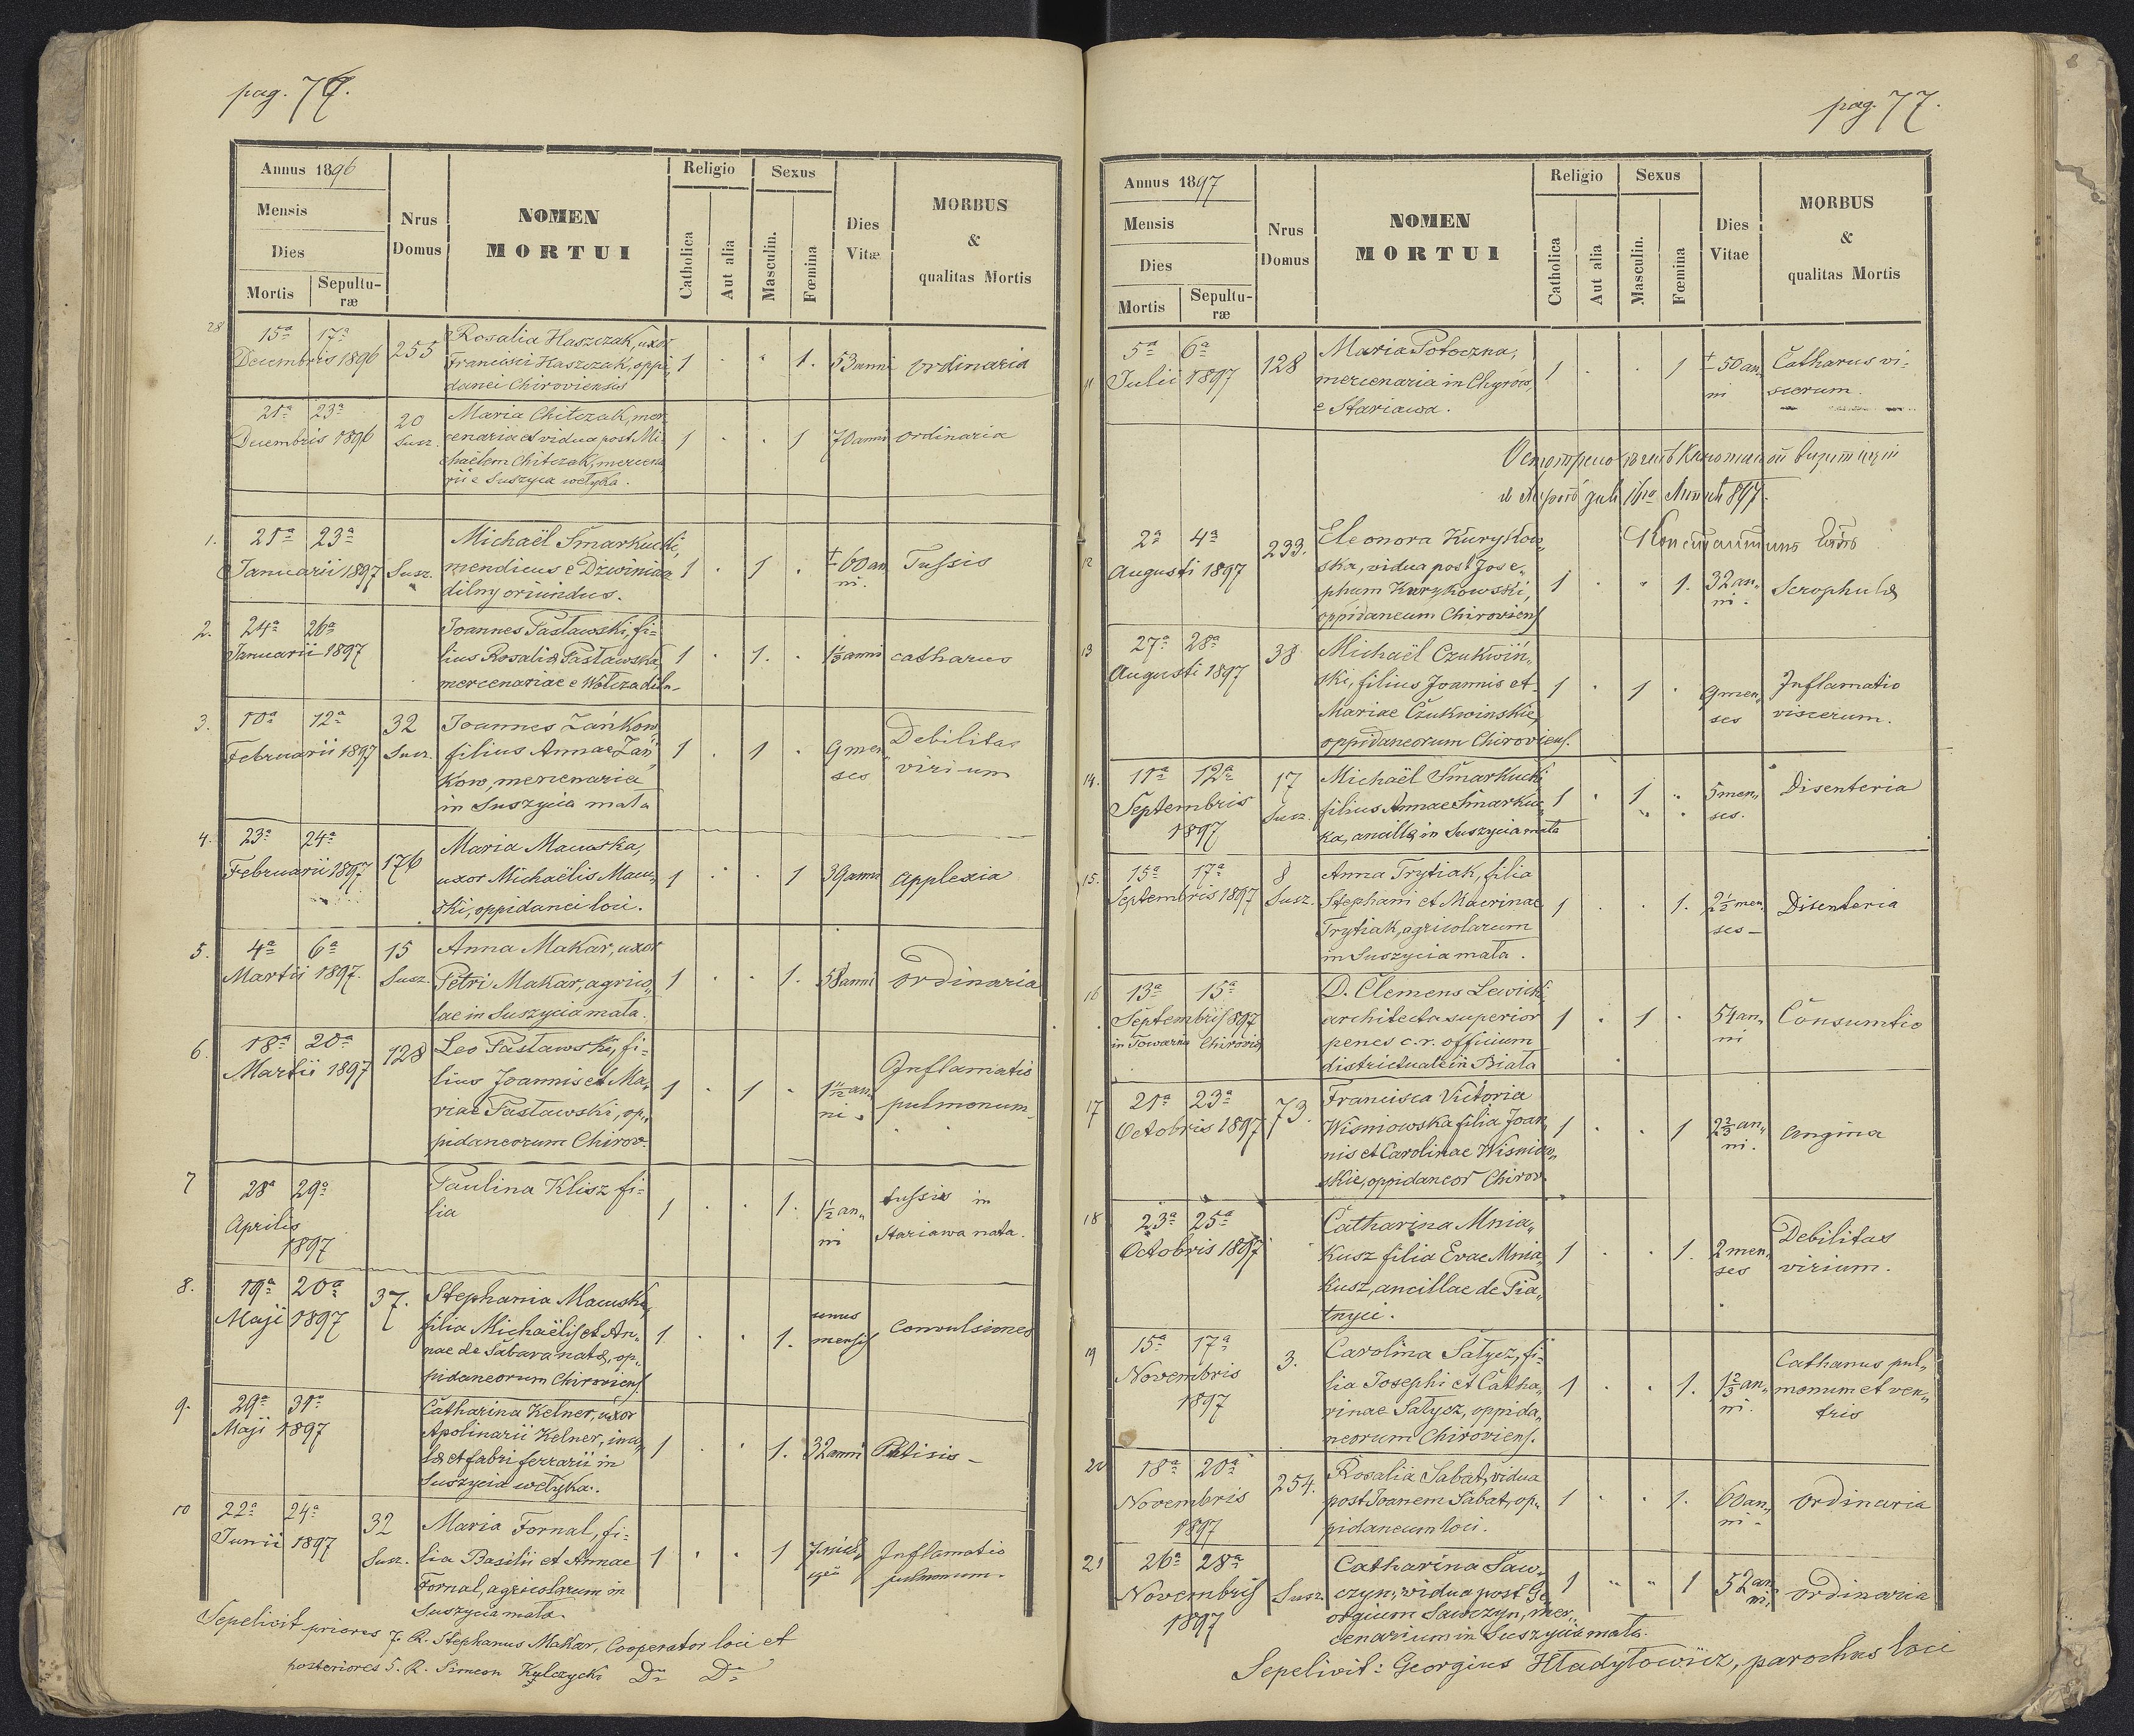 pag. 76.
Annus 1896
Mensis
Dies
Mortis
Sepultu-
ræ
Nrus
Domus
NOMEN
MORTUI
Religio
Catholica
Aut alia
Sexus
Masculin.
Fœmina
Dies
Vitæ
MORBUS
&
qualitas Mortis
28
15ª 17ª
Decembris 1896
255
Rosalia Haszczak, uxor
Francisci Haszczak, oppi„
danei Chiroviensis
1 . . 1. 53 anni ordinaria
21ª 23ª
Decembris 1896
20
Susz.
Maria Chitczak, mer„
cenaria et vidua post Mi-
chaëlem Chitczak, mercena
rii e Suszyca wełyka.
1 . . 1 70 anni ordinaria
1. 21ª 23ª
Januarii 1897
Susz.
Michaël Smarkucki,
mendicus e Dzwiniacz
dilny oriundus.
1 . 1 . ± 60 an
ni.
Tussis
2. 24ª 26ª
Januarii 1897
Joannes Pasławski, fi-
lius Rosaliæ Pasławska
mercenariae e Wołcza doln-
1 . 1. . 1⅓ anni catharus
3. 10ª 12ª
Februarii 1897
32
Susz.
Joannes Zańkow,
filius Annae Zań„
kow, mercenaria
in Suszyca mała
1 . 1 . 9 men
ses
Debilitas
virium
4. 23ª 24ª
Februarii 1897
176
Maria Macuska,
uxor Michaëlis Macu„
ski, oppidanei loci.
1 . . 1 39 anni applexia
5. 4ª 6ª
Martii 1897.
15
Susz.
Anna Makar, uxor
Petri Makar, agrico„
lae in Suszyca mała.
1 . . 1. 58 anni ordinaria
6. 18ª 20ª
Martii 1897
128
Leo Pasławski, fi-
lius Joannis et Ma„
riae Pasławski, op„
pidaneorum Chirov.
1 . 1 . an„
ni.
Inflamatio
pulmonum.
7 28ª 29ª
Aprilis
1897
Paulina Klisz fi-
lia
1 . . 1. 1½ an„
ni
tussis in
Stariawa nata.
8. 19ª 20ª
Maji 1897
37.
Stephania Macuska,
filia Michaëlis et An„
nae de Sabara natæ, op„
pidaneorum Chiroviens.
1 . . 1. unus
mensis
Convulsiones
9. 29ª 31ª
Maji 1897
Catharina Kelner, uxor
Apolinarii Kelner, incu„
læ et fabri ferrarii in
Suszyca wełyka.
1 . . 1. 32 anni Ptisis -
10 22ª 24ª
Junii 1897
32
Susz.
Maria Fornal, fi-
lia Basilii et Annae
Fornal, agricolarum in
Suszyca mała.
1 . . 1
Inflamatio
pulmonum.
Sepelivit priores 7. R. Stephanus Makar, Cooperator loci et
posteriores 5. R. Simeon Kylczycki Dº Dº
pag. 77.
Annus 1897
Mensis
Dies
Mortis
Sepultu-
ræ
Nrus
Domus
NOMEN
MORTUI
Religio
Catholica
Aut alia
Sexus
Masculin.
Fœmina
Dies
Vitae
MORBUS
&
qualitas Mortis
11 5ª 6ª
Julii 1897
128
Maria Potoczna,
mercenaria in Chyrów,
e Stariawa.
1 . . 1 ± 50 an„
ni
Catharus vi-
scerum.
12 2ª 4ª
Augusti 1897
233.
Eleonora Kurykow„
ska, vidua post Jose„
phum Kurykowski,
oppidaneum Chiroviens
1 . . 1. 32 an„
ni.
Scrophulæ
13 27ª 28ª
Augusti 1897
38
Michaël Czukwiń„
ski, filius Joannis et
Mariae Czukwinskie,
oppidaneorum Chiroviens.
1 . 1 . 9 men„
ses
Inflamatio
viscerum.
14. 11ª 12ª
Septembris
1897
17
Susz.
Michaël Smarkucki,
filius Annae Smarkuc„
ka, ancillæ in Suszyca mała
1 . 1 . 5 men„
ses.
Disenteria
15. 15ª 17ª
Septembris 1897
8
Susz.
Anna Trytiak, filia
Stephani et Macrinae
Trytiak, agricolarum
in Suszyca mała.
1 . . 1. 2½ men„
ses -
Disenteria
16 13ª 15ª
Septembris 897
in Towarna Chirovis
D. Clemens Lewicki
architecta superior
penes c. r. officium
districtuale in Biała
1 . 1 . 54 an„
ni
Consumtio
17 21ª 23ª
Octobris 1897
73.
Francisca Victoria
Wisniowska filia Joan„
nis et Carolinae Wisniow„
skie, oppidaneor Chirov.
1 . . 1 2⅔ an„
ni.
Angina
18 23ª 25ª
Octobris 1897
Catharina Mnia„
kusz filia Evae Mnia„
kusz, ancillae de Pia„
tnyci.
1 . . 1. 2 men„
ses
Debilitas
virium.
19 15ª 17ª
Novembris
1897
3.
Carolina Sałycz, fi-
lia Josephi et Catha„
rinae Sałycz, oppida„
neorum Chiroviens.
1 . . 1. 1⅔ an„
ni.
Catharus pul„
monum et ven„
tris
20 18ª 20ª
Novembris
1897
254.
Rosalia Sabat, vidua
post Joanem Sabat, op„
pidaneum loci.
1 . . 1. 60 an„
ni -
ordinaria
21 26ª 28ª
Novembris
1897
Susz.
Catharina Saw„
czyn, vidua post Ge„
orgium Sawczyn, mer„
cenarium in Suszyca mała.
1 . . 1 52 an„
ni.
ordinaria
Sepelivit: Georgius Hładyłowicz, parochus loci